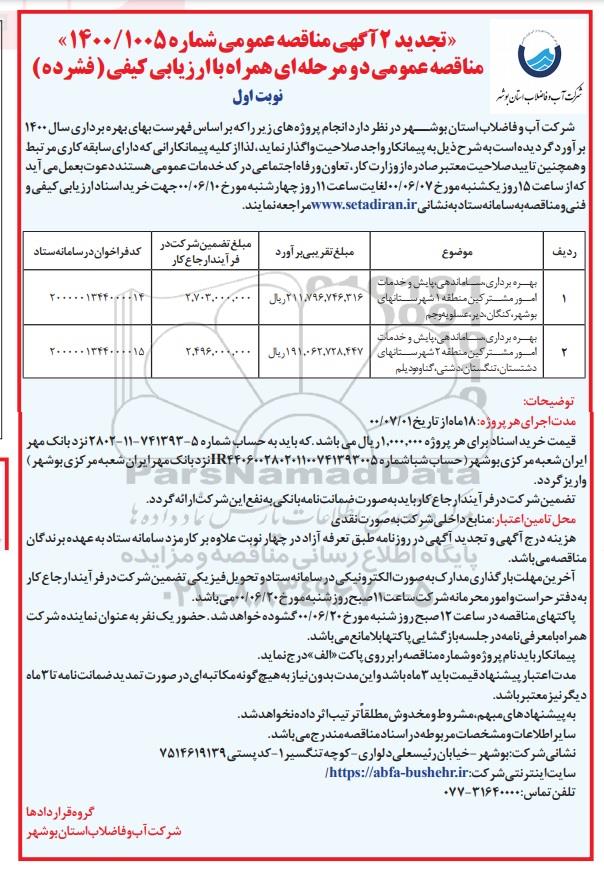 «تجدید ۲ آگهی مناقصه عمومی شماره ۱۴۰۰/۱۰۰۵»
مناقصه عمومی دو مرحله‌ای همراه با ارزیابی کیفی (فشرده)
نوبت اول
شرکت آب و فاضلاب استان بوشهر
شرکت آب و فاضلاب استان بوشهر در نظر دارد انجام پروژه‌های زیر را که بر اساس فهرست بهای بهره برداری سال ۱۴۰۰
برآورد گردیده است به شرح ذیل به پیمانکار واجد صلاحیت واگذار نماید، لذا از کلیه پیمانکارانی که دارای سابقه کاری مرتبط
و همچنین تایید صلاحیت معتبر صادره از وزارت کار، تعاون و رفاه اجتماعی در کد خدمات عمومی هستند دعوت بعمل می آید
که از ساعت ۱۵ روز یکشنبه مورخ ۰۰/۰۶/۰۷ لغایت ساعت ۱۱ روز چهارشنبه مورخ ۰۰/۰۶/۱۰ جهت خرید اسناد ارزیابی کیفی و
فنی و مناقصه به سامانه ستاد به نشانی www.setadiran.ir مراجعه نمایند.
ردیف موضوع مبلغ تقریبی برآورد مبلغ تضمین شرکت در فرآیند ارجاع کار کد فراخوان در سامانه ستاد
۱ بهره برداری، ساماندهی، پایش و خدمات
امور مشترکین منطقه ۱ شهرستانهای
بوشهر، کنگان، دیر، عسلویه و جم
۲۱۱,۷۹۶,۷۴۶,۳۱۶ ریال ۲,۷۰۳,۰۰۰,۰۰۰ ۲۰۰۰۰۰۱۳۴۴۰۰۰۰۱۴
۲ بهره برداری، ساماندهی، پایش و خدمات
امور مشترکین منطقه ۲ شهرستانهای
دشتستان، تنگستان، دشتی، گناوه و دیلم
۱۹۱,۰۶۲,۷۲۸,۴۴۷ ریال ۲,۴۹۶,۰۰۰,۰۰۰ ۲۰۰۰۰۰۱۳۴۴۰۰۰۰۱۵
توضیحات:
مدت اجرای هر پروژه: ۱۸ ماه از تاریخ ۰۰/۰۷/۰۱
قیمت خرید اسناد برای هر پروژه ۱,۰۰۰,۰۰۰ ریال می باشد. که باید به حساب شماره ۵-۷۴۱۳۹۳-۱۱-۲۸۰۲ نزد بانک مهر
ایران شعبه مرکزی بوشهر (حساب شبا شماره IR۴۴۰۶۰۰۲۸۰۲۰۱۱۰۰۷۴۱۳۹۳۰۰۵ نزد بانک مهر ایران شعبه مرکزی بوشهر)
واریز گردد.
تضمین شرکت در فرآیند ارجاع کار باید به صورت ضمانت نامه بانکی به نفع این شرکت ارائه گردد.
محل تامین اعتبار: منابع داخلی شرکت به صورت نقدی
هزینه درج آگهی و تجدید آگهی در روزنامه طبق تعرفه آزاد در چهار نوبت علاوه بر کارمزد سامانه ستاد به عهده برندگان
مناقصه می باشد.
آخرین مهلت بارگذاری مدارک به صورت الکترونیکی در سامانه ستاد و تحویل فیزیکی تضمین شرکت در فرآیند ارجاع کار
به دفتر حراست و امور محرمانه شرکت ساعت ۱۱ صبح روز شنبه مورخ ۰۰/۰۶/۲۰ می باشد.
پاکتهای مناقصه در ساعت ۱۲ صبح روز شنبه مورخ ۰۰/۰۶/۲۰ گشوده خواهد شد. حضور یک نفر به عنوان نماینده شرکت
همراه با معرفی نامه در جلسه بازگشایی پاکتها بلامانع می باشد.
پیمانکار باید نام پروژه و شماره مناقصه را بر روی پاکت «الف» درج نماید.
مدت اعتبار پیشنهاد قیمت باید ۳ ماه باشد و این مدت بدون نیاز به هیچ گونه مکاتبه‌ای در صورت تمدید ضمانت نامه تا ۳ ماه
دیگر نیز معتبر باشد.
به پیشنهادهای مبهم، مشروط و مخدوش مطلقاً ترتیب اثر داده نخواهد شد.
سایر اطلاعات و مشخصات مربوطه در اسناد مناقصه مندرج می باشد.
نشانی شرکت: بوشهر - خیابان رئیسعلی دلواری - کوچه تنگسیر ۱ - کد پستی ۷۵۱۴۶۱۹۱۳۹
سایت اینترنتی شرکت: https://abfa-bushehr.ir/
تلفن تماس: ۳۱۶۴۰۰۰۰-۰۷۷
گروه قراردادها
شرکت آب و فاضلاب استان بوشهر
ParsNamadData